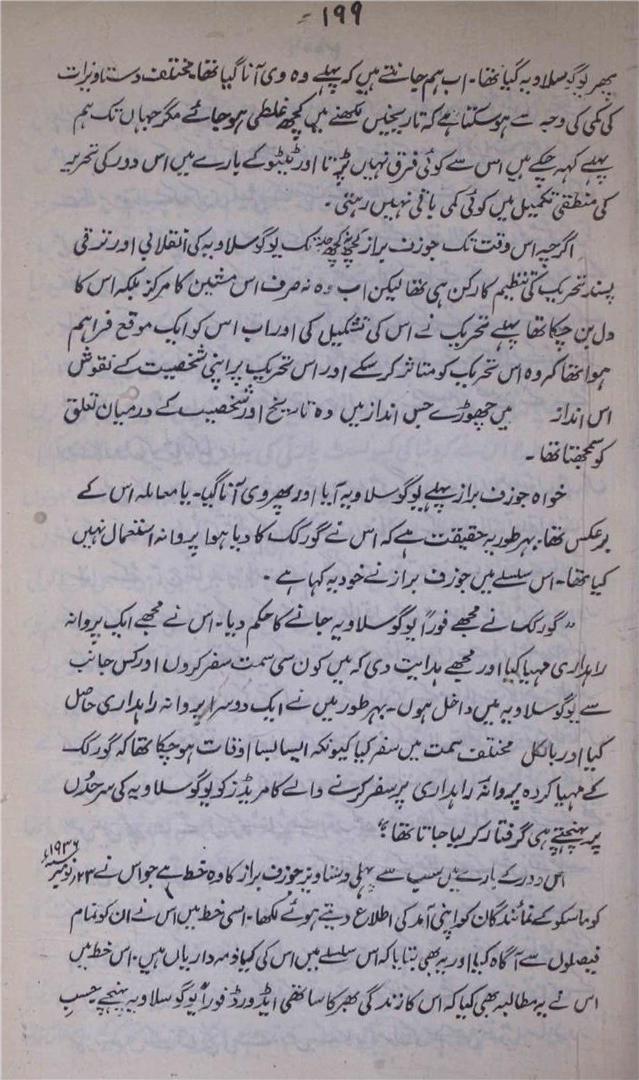 ۱۹۹ ۔
پھر یوگوسلاویہ گیا تھا۔ اب ہم جانتے ہیں کہ پہلے وہ وی آنا گیا تھا۔ مختلف دستاویزات
کی کمی کی وجہ سے ہو سکتا ہے کہ تاریخیں لکھنے میں کچھ غلطی ہو جائے مگر جہاں تک ہم
پہلے کہہ چکے ہیں اس سے کوئی فرق نہیں پڑتا اور ٹیٹو کے بارے میں اس دور کی تحریر
کی منطقی تکمیل میں کوئی کمی باقی نہیں رہتی۔
اگرچہ اس وقت تک جوزف براز کچھ نہ کچھ حد تک یوگوسلاویہ کی انقلابی اور ترقی
پسند تحریک کی تنظیم کا رکن ہی تھا لیکن اب وہ نہ صرف اس مشین کا مرکز بلکہ اس کا
دل بن چکا تھا پہلے تحریک نے اس کی تشکیل کی اور اب اس کو ایک موقع فراہم
ہوا تھا کہ وہ اس تحریک کو متاثر کر سکے اور اس تحریک پر اپنی شخصیت کے نقوش
اس انداز میں چھوڑے جس انداز میں وہ تاریخ اور شخصیت کے درمیان تعلق
کو سمجھتا تھا۔
خواہ جوزف براز پہلے یوگوسلاویہ آیا اور پھر وی آنا گیا۔ یا معاملہ اس کے
برعکس تھا۔ بہر طور یہ حقیقت ہے کہ اس نے گورکک کا دیا ہوا پروانہ استعمال نہیں
کیا تھا۔ اس سلسلے میں جوزف براز نے خود یہ کہا ہے۔
"گورکک نے مجھے فوراً یوگوسلاویہ جانے کا حکم دیا۔ اس نے مجھے ایک پروانہ
راہداری مہیا کیا اور مجھے ہدایت دی کہ میں کون سی سمت سفر کروں اور کس جانب
سے یوگوسلاویہ میں داخل ہوں۔ بہر طور میں نے ایک دوسرا پروانہ راہداری حاصل
کیا اور بالکل مختلف سمت میں سفر کیا کیونکہ ایسا بسا اوقات ہو چکا تھا کہ گورکک
کے مہیا کردہ پروانۂ راہداری پر سفر کرنے والے کامریڈز کو یوگوسلاویہ کی سرحدوں
پر پہنچتے ہی گرفتار کر لیا جاتا تھا"
اس دور کے بارے میں سب سے پہلی دستاویز جوزف براز کا وہ خط ہے جو اس نے ۲۳؍نومبر ۱۹۳۶ء
کو ماسکو کے نمائندگان کو اپنی آمد کی اطلاع دیتے ہوئے لکھا۔ اسی خط میں اس نے ان کو تمام
فیصلوں سے آگاہ کیا اور یہ بھی بتایا کہ اس سلسلے میں اس کی کیا ذمہ داریاں ہیں۔ اس خط میں
اس نے یہ مطالبہ بھی کیا کہ اس کا زندگی بھر کا ساتھی ایڈورڈ فوراً یوگوسلاویہ پہنچے جیسے